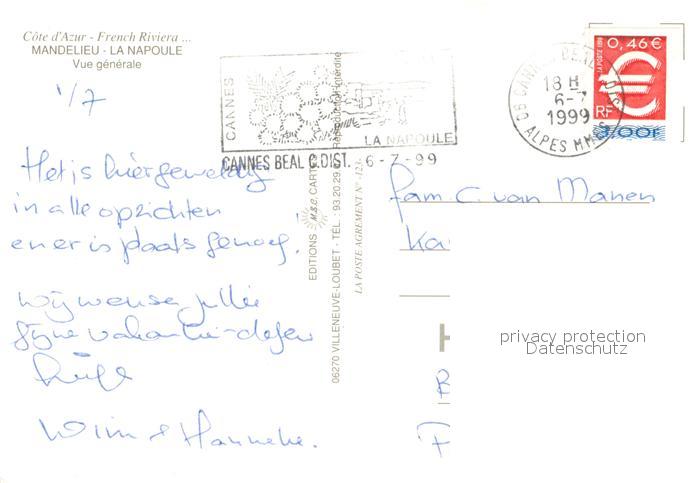 Côte d'Azur - French Riviera ...
MANDELIEU - LA NAPOULE
Vue générale
1/7
Het is hier geweldig
in alle opzichten
en er is plaats genoeg.
Wij wensen jullie
fijne vakantie-dagen
Wim & Hanneke.
EDITIONS M.S.C. CART
06270 VILLENEUVE-LOUBET - TÉL : 93.20.29
Reproduction interdite
LA POSTE AGREMENT N° 423
CANNES
LA NAPOULE
CANNES BEAL C.DIST. 6-7-99
18 H
6-7
1999
ALPES MMES
0,46 €
LA POSTE 1999
€
RF
3,00F
Fam. C. van Manen
Ka
H
privacy protection
Datenschutz